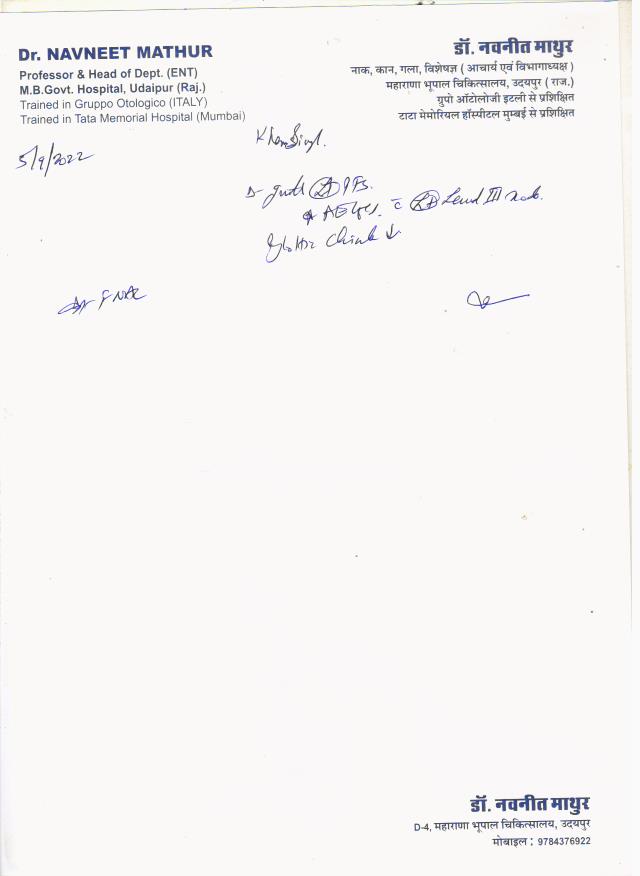 Dr. NAVNEET MATHUR
Professor & Head of Dept. (ENT)
M.B.Govt. Hospital, Udaipur (Raj.)
Trained in Gruppo Otologico (ITALY)
Trained in Tata Memorial Hospital (Mumbai)
डॉ. नवनीत माथुर
नाक, कान, गला, विशेषज्ञ ( आचार्य एवं विभागाध्यक्ष )
महाराणा भूपाल चिकित्सालय, उदयपुर ( राज.)
ग्रुपो ऑटोलोजी इटली से प्रशिक्षित
टाटा मेमोरियल हॉस्पीटल मुम्बई से प्रशिक्षित
5/9/2022
PFS.
c̄ Level III node.
Chink ↓
FNAC
डॉ. नवनीत माथुर
D-4, महाराणा भूपाल चिकित्सालय, उदयपुर
मोबाइल : 9784376922